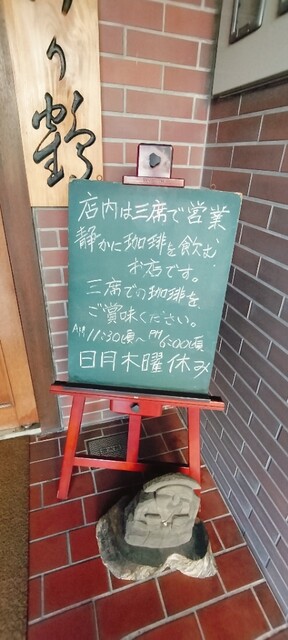 り鶴
店内は三席で営業
静かに珈琲を飲む
お店です。
三席での珈琲を
ご賞味ください。
AM11:30頃〜PM6:00頃
日月木曜休み